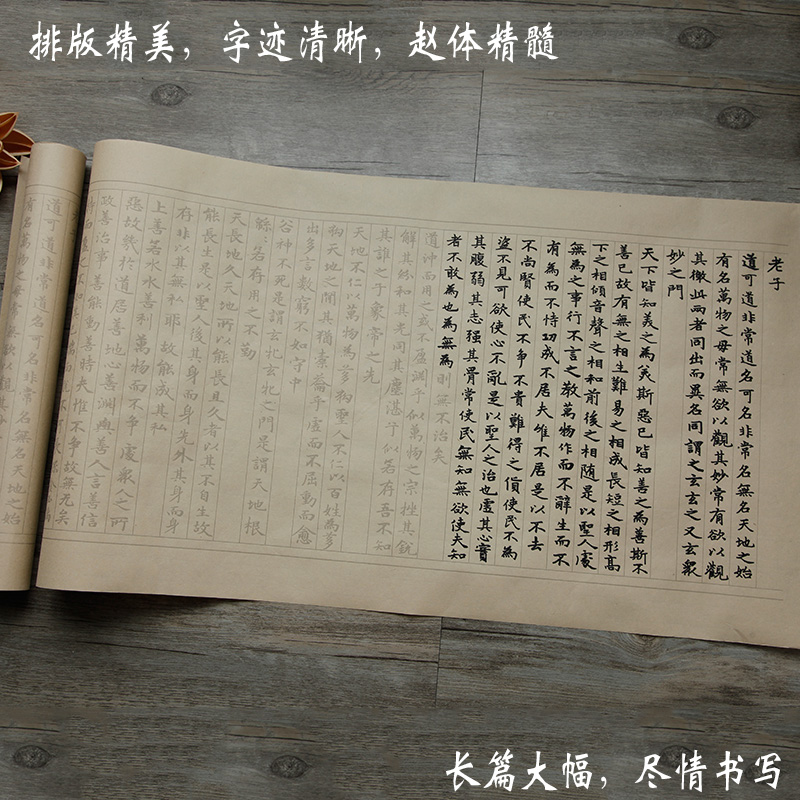 排版精美，字迹清晰，赵体精髓
老子
道可道非常道名可名非常名無名天地之始
有名萬物之母常無欲以觀其妙常有欲以觀
其徼此兩者同出而異名同謂之玄玄之又玄眾
妙之門
天下皆知美之為美斯惡已皆知善之為善斯不
善已故有無之相生難易之相成長短之相形高
下之相傾音聲之相和前後之相随是以聖人處
無為之事行不言之教萬物作而不辭生而不
有為而不恃功成不居夫惟不居是以不去
不尚賢使民不争不貴難得之貨使民不為
盗不見可欲使心不亂是以聖人之治也虚其心實
其腹弱其志强其骨常使民無知無欲使夫知
者不敢為也為無為
則無不治矣
道沖而用之或不盈淵乎似萬物之宗挫其銳
解其紛和其光同其塵湛乎似若存吾不知
其誰之子象帝之先
天地不仁以萬物為芻狗聖人不仁以百姓為芻
狗天地之間其猶橐籥乎虚而不屈動而愈
出多言數窮不如守中
谷神不死是謂玄牝玄牝之門是謂天地根
綿綿若存用之不勤
天長地久天地所以能長且久者以其不自生故
能長生是以聖人後其身而身先外其身而身
存非以其無私耶故能成其私
上善若水水善利萬物而不争處眾人之所
惡故幾於道居善地心善淵與善人言善信
政善治事善能動善時夫惟不争故無尤矣
道可道非常道名可名非常名無名天地之始
有名萬物之母常無欲以觀其妙
长篇大幅，尽情书写